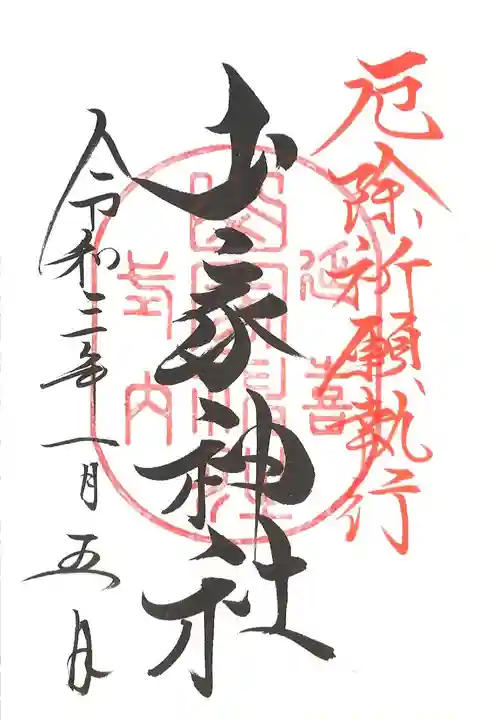 厄除祈願執行
延喜
山家神社
山家神社
式内
令和三年一月五日